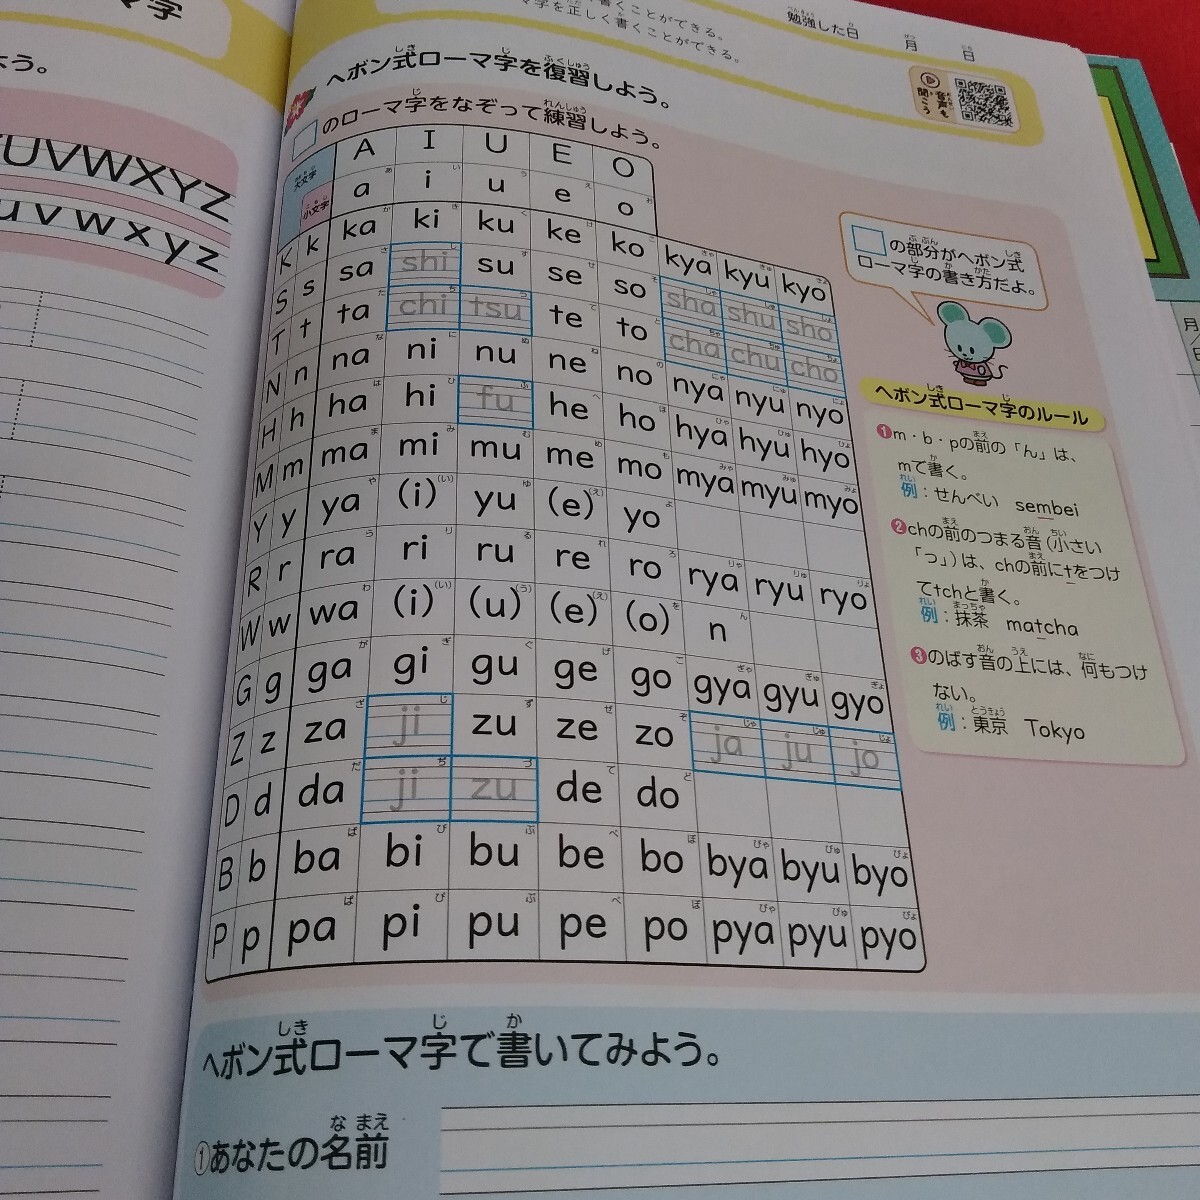 マ字
よう。
UVWXYZ
uvwxyz
書くことができる。
マ字を正しく書くことができる。
勉強した日 月 日
ヘボン式ローマ字を復習しよう。
音声も聞こう
□のローマ字をなぞって練習しよう。
大文字
小文字
A I U E O
a i u e o
K k ka ki ku ke ko kya kyu kyo
S s sa shi su se so sha shu sho
T t ta chi tsu te to cha chu cho
N n na ni nu ne no nya nyu nyo
H h ha hi fu he ho hya hyu hyo
M m ma mi mu me mo mya myu myo
Y y ya (i) yu (e) yo
R r ra ri ru re ro rya ryu ryo
W w wa (i) (u) (e) (o) n
G g ga gi gu ge go gya gyu gyo
Z z za ji zu ze zo ja ju jo
D d da ji zu de do
B b ba bi bu be bo bya byu byo
P p pa pi pu pe po pya pyu pyo
□の部分がヘボン式
ローマ字の書き方だよ。
ヘボン式ローマ字のルール
❶m・b・pの前の「ん」は、
mで書く。
例：せんべい sembei
❷chの前のつまる音(小さい
「つ」)は、chの前にtをつけ
てtchと書く。
例：抹茶 matcha
❸のばす音の上には、何もつけ
ない。
例：東京 Tokyo
ヘボン式ローマ字で書いてみよう。
①あなたの名前
月
日